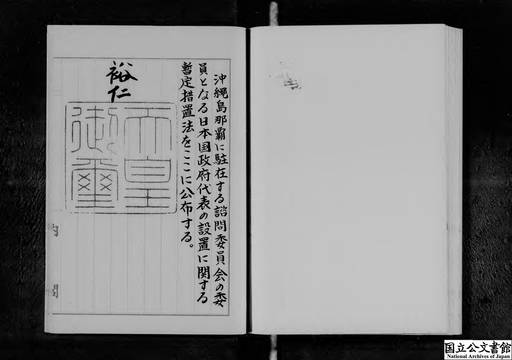 沖縄島那覇に駐在する諮問委員会の委
員となる日本国政府代表の設置に関する
暫定措置法をここに公布する。
裕仁
天皇
御璽
内
閣
国立公文書館
National Archives of Japan